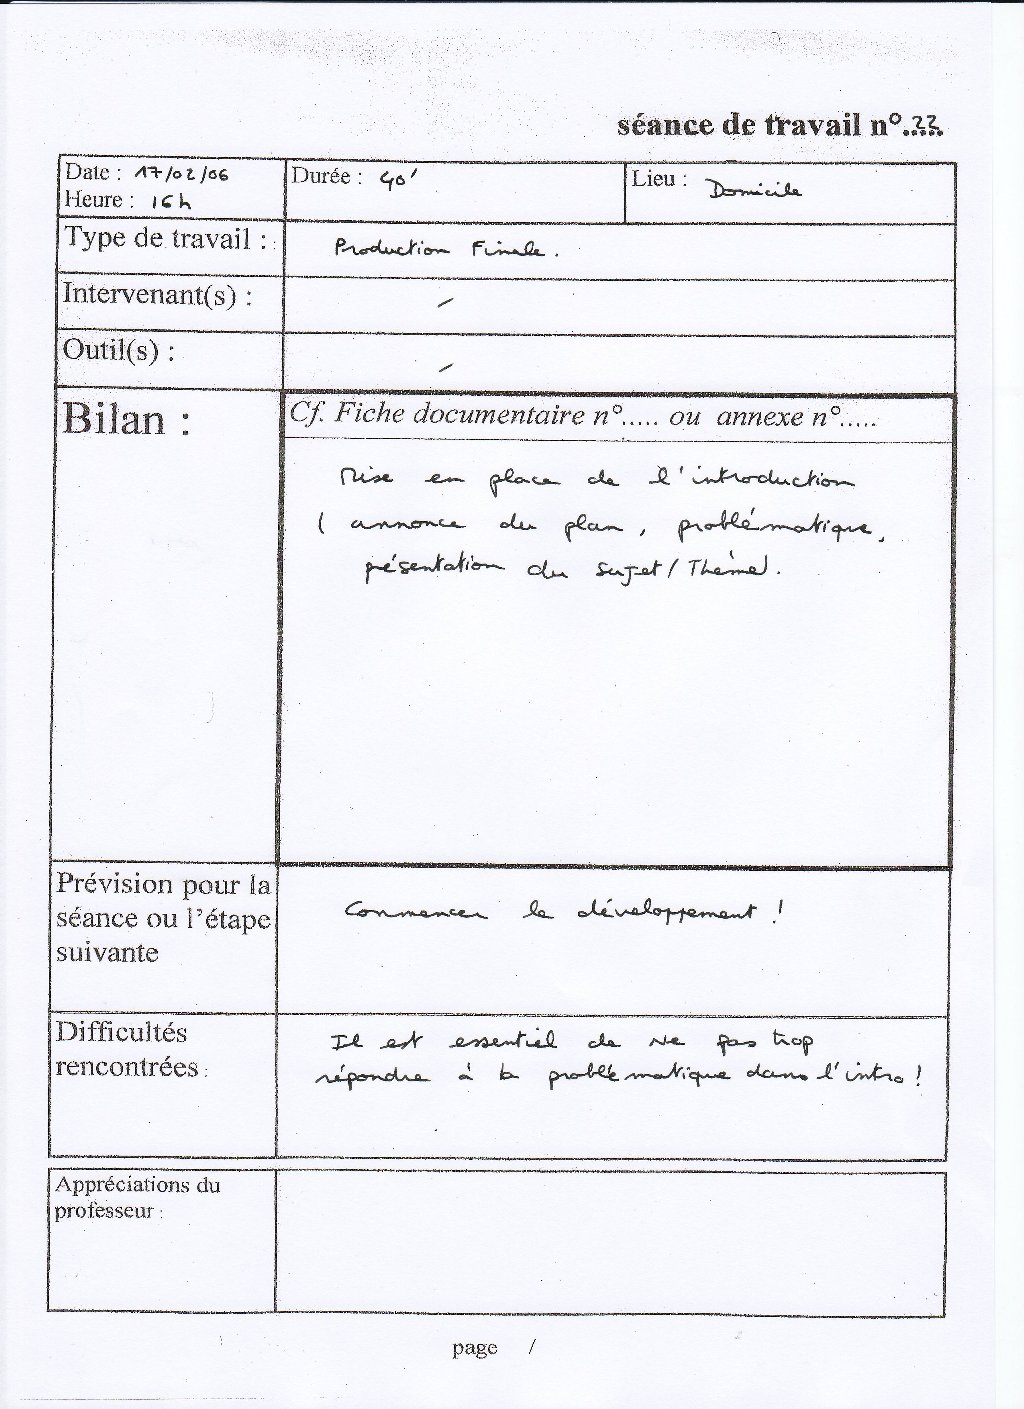 séance de travail n°.22.
Date : 17/02/06
Heure : 16h
Durée : 40'
Lieu : Domicile
Type de travail :
Production Finale.
Intervenant(s) :
/
Outil(s) :
/
Bilan :
Cf. Fiche documentaire n°..... ou annexe n°.....
Mise en place de l'introduction
( annonce du plan, problématique,
présentation du sujet / Thème).
Prévision pour la
séance ou l'étape
suivante
Commencer le développement !
Difficultés
rencontrées :
Il est essentiel de Ne pas trop
répondre à la problématique dans l'intro !
Appréciations du
professeur :
page /